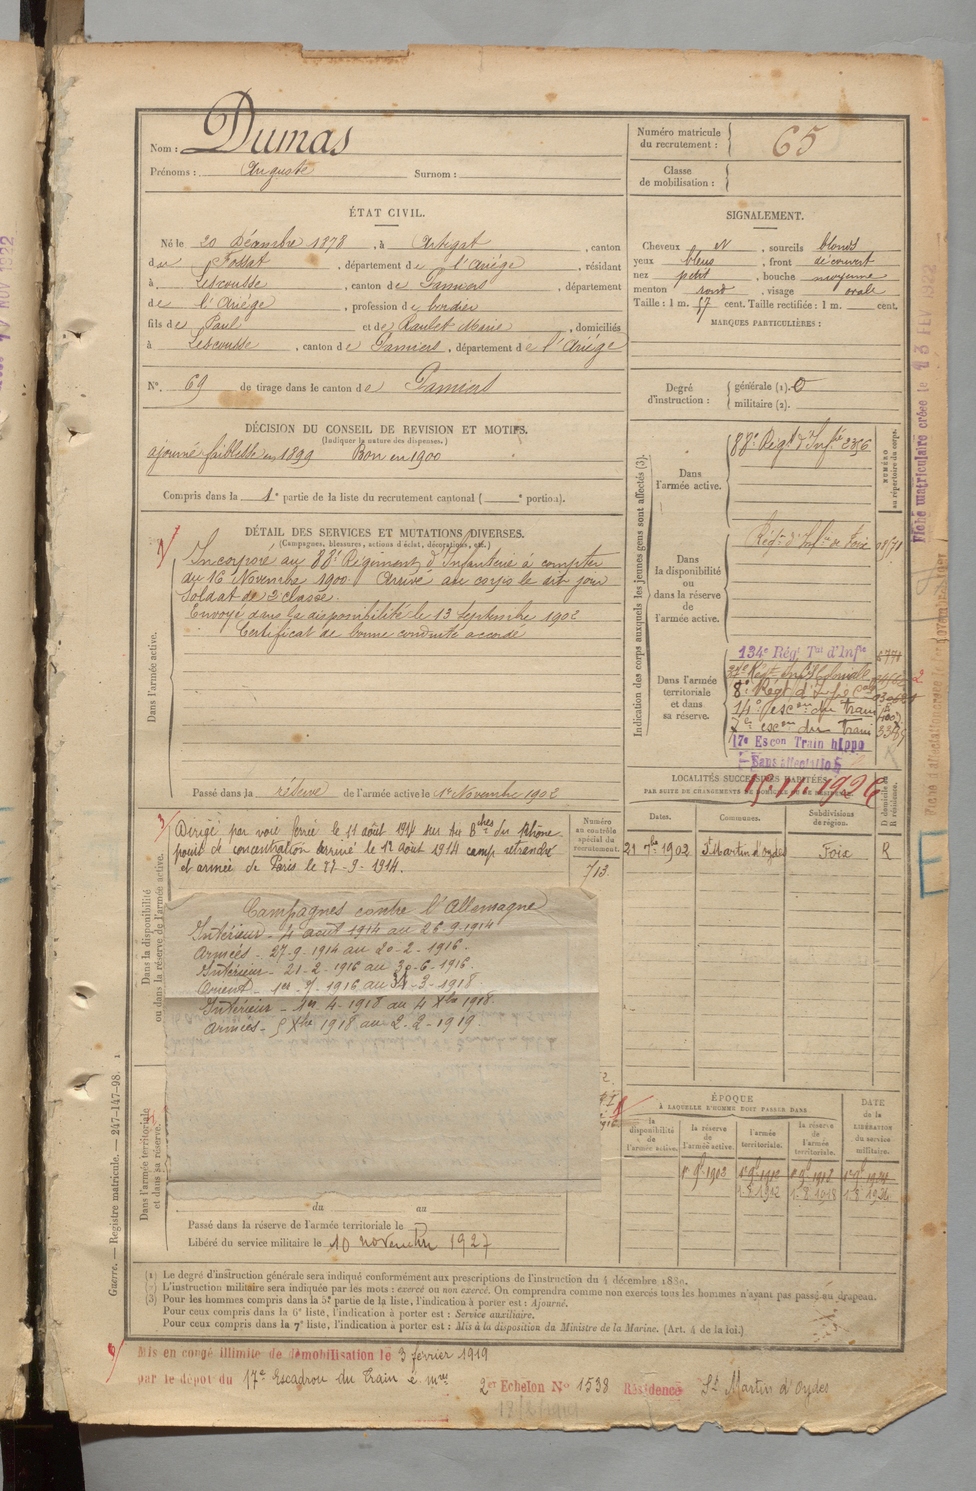 Nom : Dumas
Prénoms : Auguste Surnom :
Numéro matricule du recrutement : 65
Classe de mobilisation :
ÉTAT CIVIL.
Né le 20 Décembre 1878, à Artigat, canton
du Fossat, département de l'Ariége, résidant
à Lescousse, canton de Pamiers, département
de l'Ariége, profession de bordier
fils de Paul et de Raulet Marie, domiciliés
à Lescousse, canton de Pamiers, département de l'Ariége
N° 69 de tirage dans le canton de Pamiers
SIGNALEMENT.
Cheveux N, sourcils blonds
yeux bleus, front découvert
nez petit, bouche moyenne
menton rond, visage ovale
Taille : 1 m. 57 cent. Taille rectifiée : 1 m. cent.
MARQUES PARTICULIÈRES :
Degré d'instruction : générale (1). 0
militaire (2).
DÉCISION DU CONSEIL DE REVISION ET MOTIFS.
(Indiquer la nature des dispenses.)
ajourné faiblesse en 1899 Bon en 1900
Compris dans la 1e partie de la liste du recrutement cantonal ( e portion).
DÉTAIL DES SERVICES ET MUTATIONS DIVERSES.
(Campagnes, blessures, actions d'éclat, décorations, etc.)
Dans l'armée active.
Incorporé au 88e Régiment d'Infanterie à compter
du 16 Novembre 1900. Arrivé au corps le dit jour
Soldat de 2e classe.
Envoyé dans la disponibilité le 13 Septembre 1902
Certificat de bonne conduite accordé
Passé dans la réserve de l'armée active le 1er Novembre 1902
Indication des corps auxquels les jeunes gens sont affectés (3).
NUMÉRO au répertoire du corps.
Dans l'armée active.
88e Régt d'Infie 2356
Dans la disponibilité ou dans la réserve de l'armée active.
Régt d'Infie de Foix
Dans l'armée territoriale et dans sa réserve.
134e Régt Tal d'Infie
8e Régt d'Infie Cale
14e escon du train
7e escon du train
17e Escon Train hippo
Sans affectation
LOCALITÉS SUCCESSIVES HABITÉES
PAR SUITE DE CHANGEMENTS DE DOMICILE OU DE RÉSIDENCE.
15.11.1926
Dates. Communes. Subdivisions de région. D domicile R résidence.
21 7bre 1902 St Martin d'Oydes Foix R
Dans la disponibilité ou dans la réserve de l'armée active.
Numéro au contrôle spécial du recrutement.
713
Dirigé par voie ferrée le 11 août 1914 sur les Bches du Rhône
point de concentration arrivé le 12 août 1914 camp retranché
et armée de Paris le 27-9-1914.
Campagnes contre l'Allemagne
Intérieur - 4 août 1914 au 26-9-1914
Armées - 27-9-1914 au 20-2-1916.
Intérieur - 21-2-1916 au 30-6-1916.
Orient - 1er-7-1916 au 31-3-1918.
Intérieur - 1er 4-1918 au 4 Xbre 1918.
Armées - 5 Xbre 1918 au 2-2-1919.
Dans l'armée territoriale et dans sa réserve.
du au
Passé dans la réserve de l'armée territoriale le
Libéré du service militaire le 10 novembre 1927
ÉPOQUE
À LAQUELLE L'HOMME DOIT PASSER DANS
la disponibilité de l'armée active.
la réserve de l'armée active.
l'armée territoriale.
la réserve de l'armée territoriale.
DATE de la LIBÉRATION du service militaire.
(1) Le degré d'instruction générale sera indiqué conformément aux prescriptions de l'instruction du 4 décembre 1889.
(2) L'instruction militaire sera indiquée par les mots : exercé ou non exercé. On comprendra comme non exercés tous les hommes n'ayant pas passé au drapeau.
(3) Pour les hommes compris dans la 5e partie de la liste, l'indication à porter est : Ajourné.
Pour ceux compris dans la 6e liste, l'indication à porter est : Service auxiliaire.
Pour ceux compris dans la 7e liste, l'indication à porter est : Mis à la disposition du Ministre de la Marine. (Art. 4 de la loi.)
Mis en congé illimité de démobilisation le 3 février 1919
par le dépot du 17e Escadron du Train
2er Echelon No 1538 Résidence St Martin d'Oydes
Guerre. — Registre matricule. — 247-147-98.
Fiche matriculaire créée le 23 FEV 1922